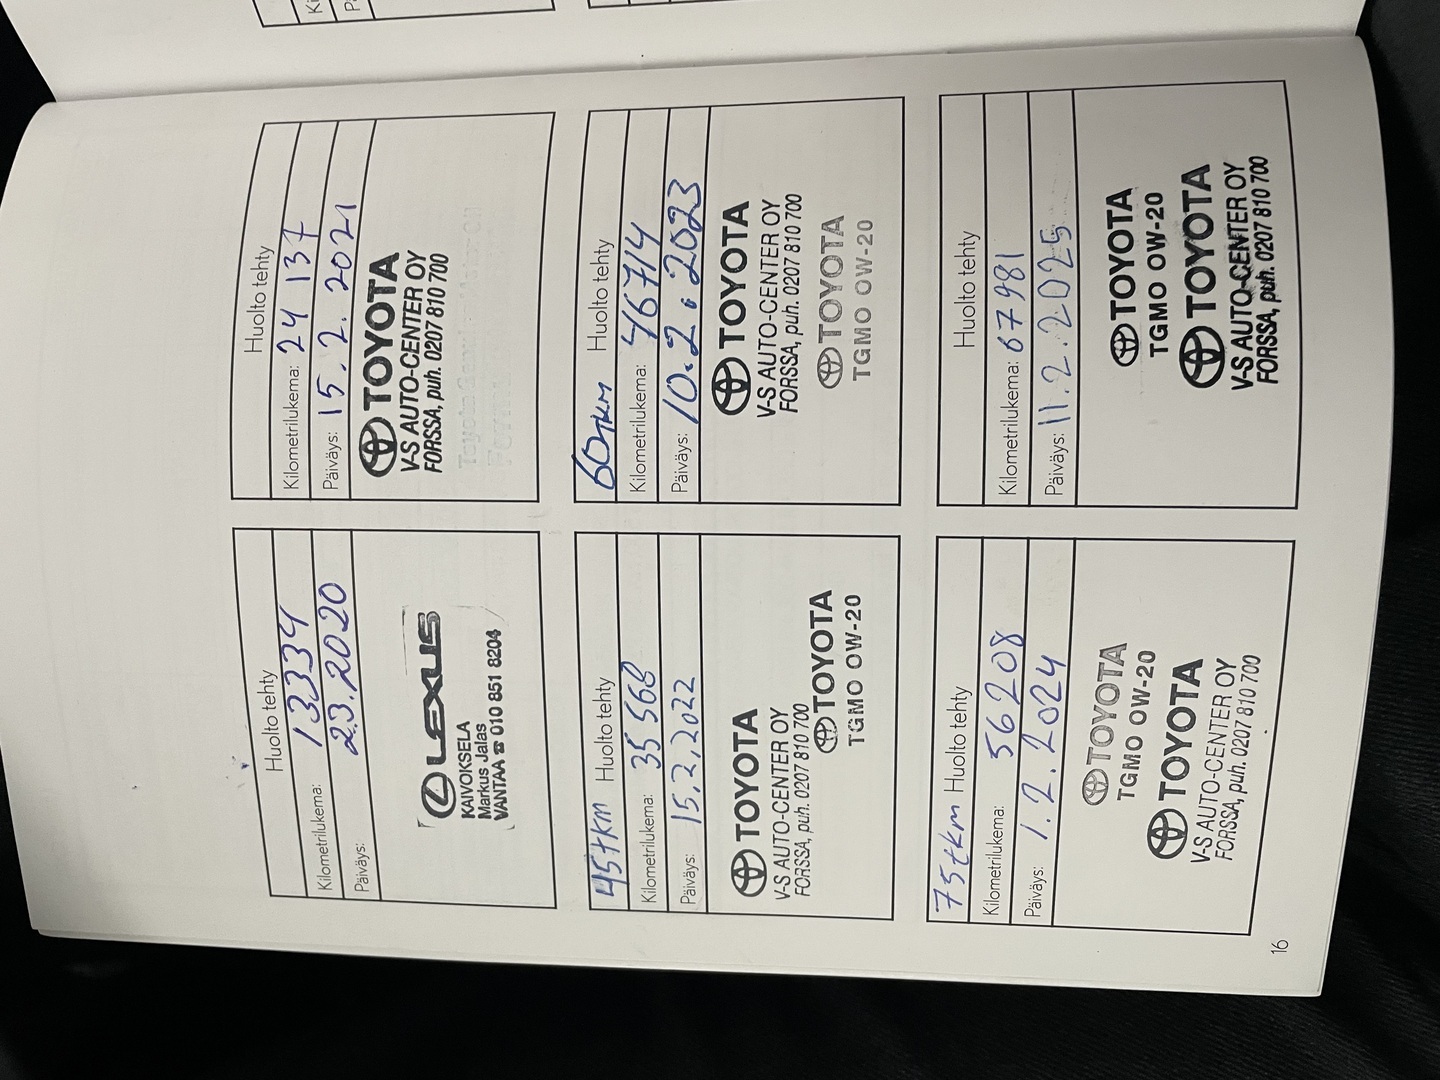 Huolto tehty
Kilometrilukema: 13334
Päiväys: 2.3.2020
LEXUS
KAIVOKSELA
Markus Jalas
VANTAA ☎ 010 851 8204
Huolto tehty
Kilometrilukema: 24 137
Päiväys: 15.2.2021
TOYOTA
V-S AUTO-CENTER OY
FORSSA, puh. 0207 810 700
45tkm Huolto tehty
Kilometrilukema: 35 568
Päiväys: 15.2.2022
TOYOTA
V-S AUTO-CENTER OY
FORSSA, puh. 0207 810 700
TOYOTA
TGMO OW-20
60tkm Huolto tehty
Kilometrilukema: 46714
Päiväys: 10.2.2023
TOYOTA
V-S AUTO-CENTER OY
FORSSA, puh. 0207 810 700
TOYOTA
TGMO OW-20
75tkm Huolto tehty
Kilometrilukema: 56208
Päiväys: 1.2.2024
TOYOTA
TGMO OW-20
TOYOTA
V-S AUTO-CENTER OY
FORSSA, puh. 0207 810 700
Huolto tehty
Kilometrilukema: 67981
Päiväys: 11.2.2025
TOYOTA
TGMO OW-20
TOYOTA
V-S AUTO-CENTER OY
FORSSA, puh. 0207 810 700
16